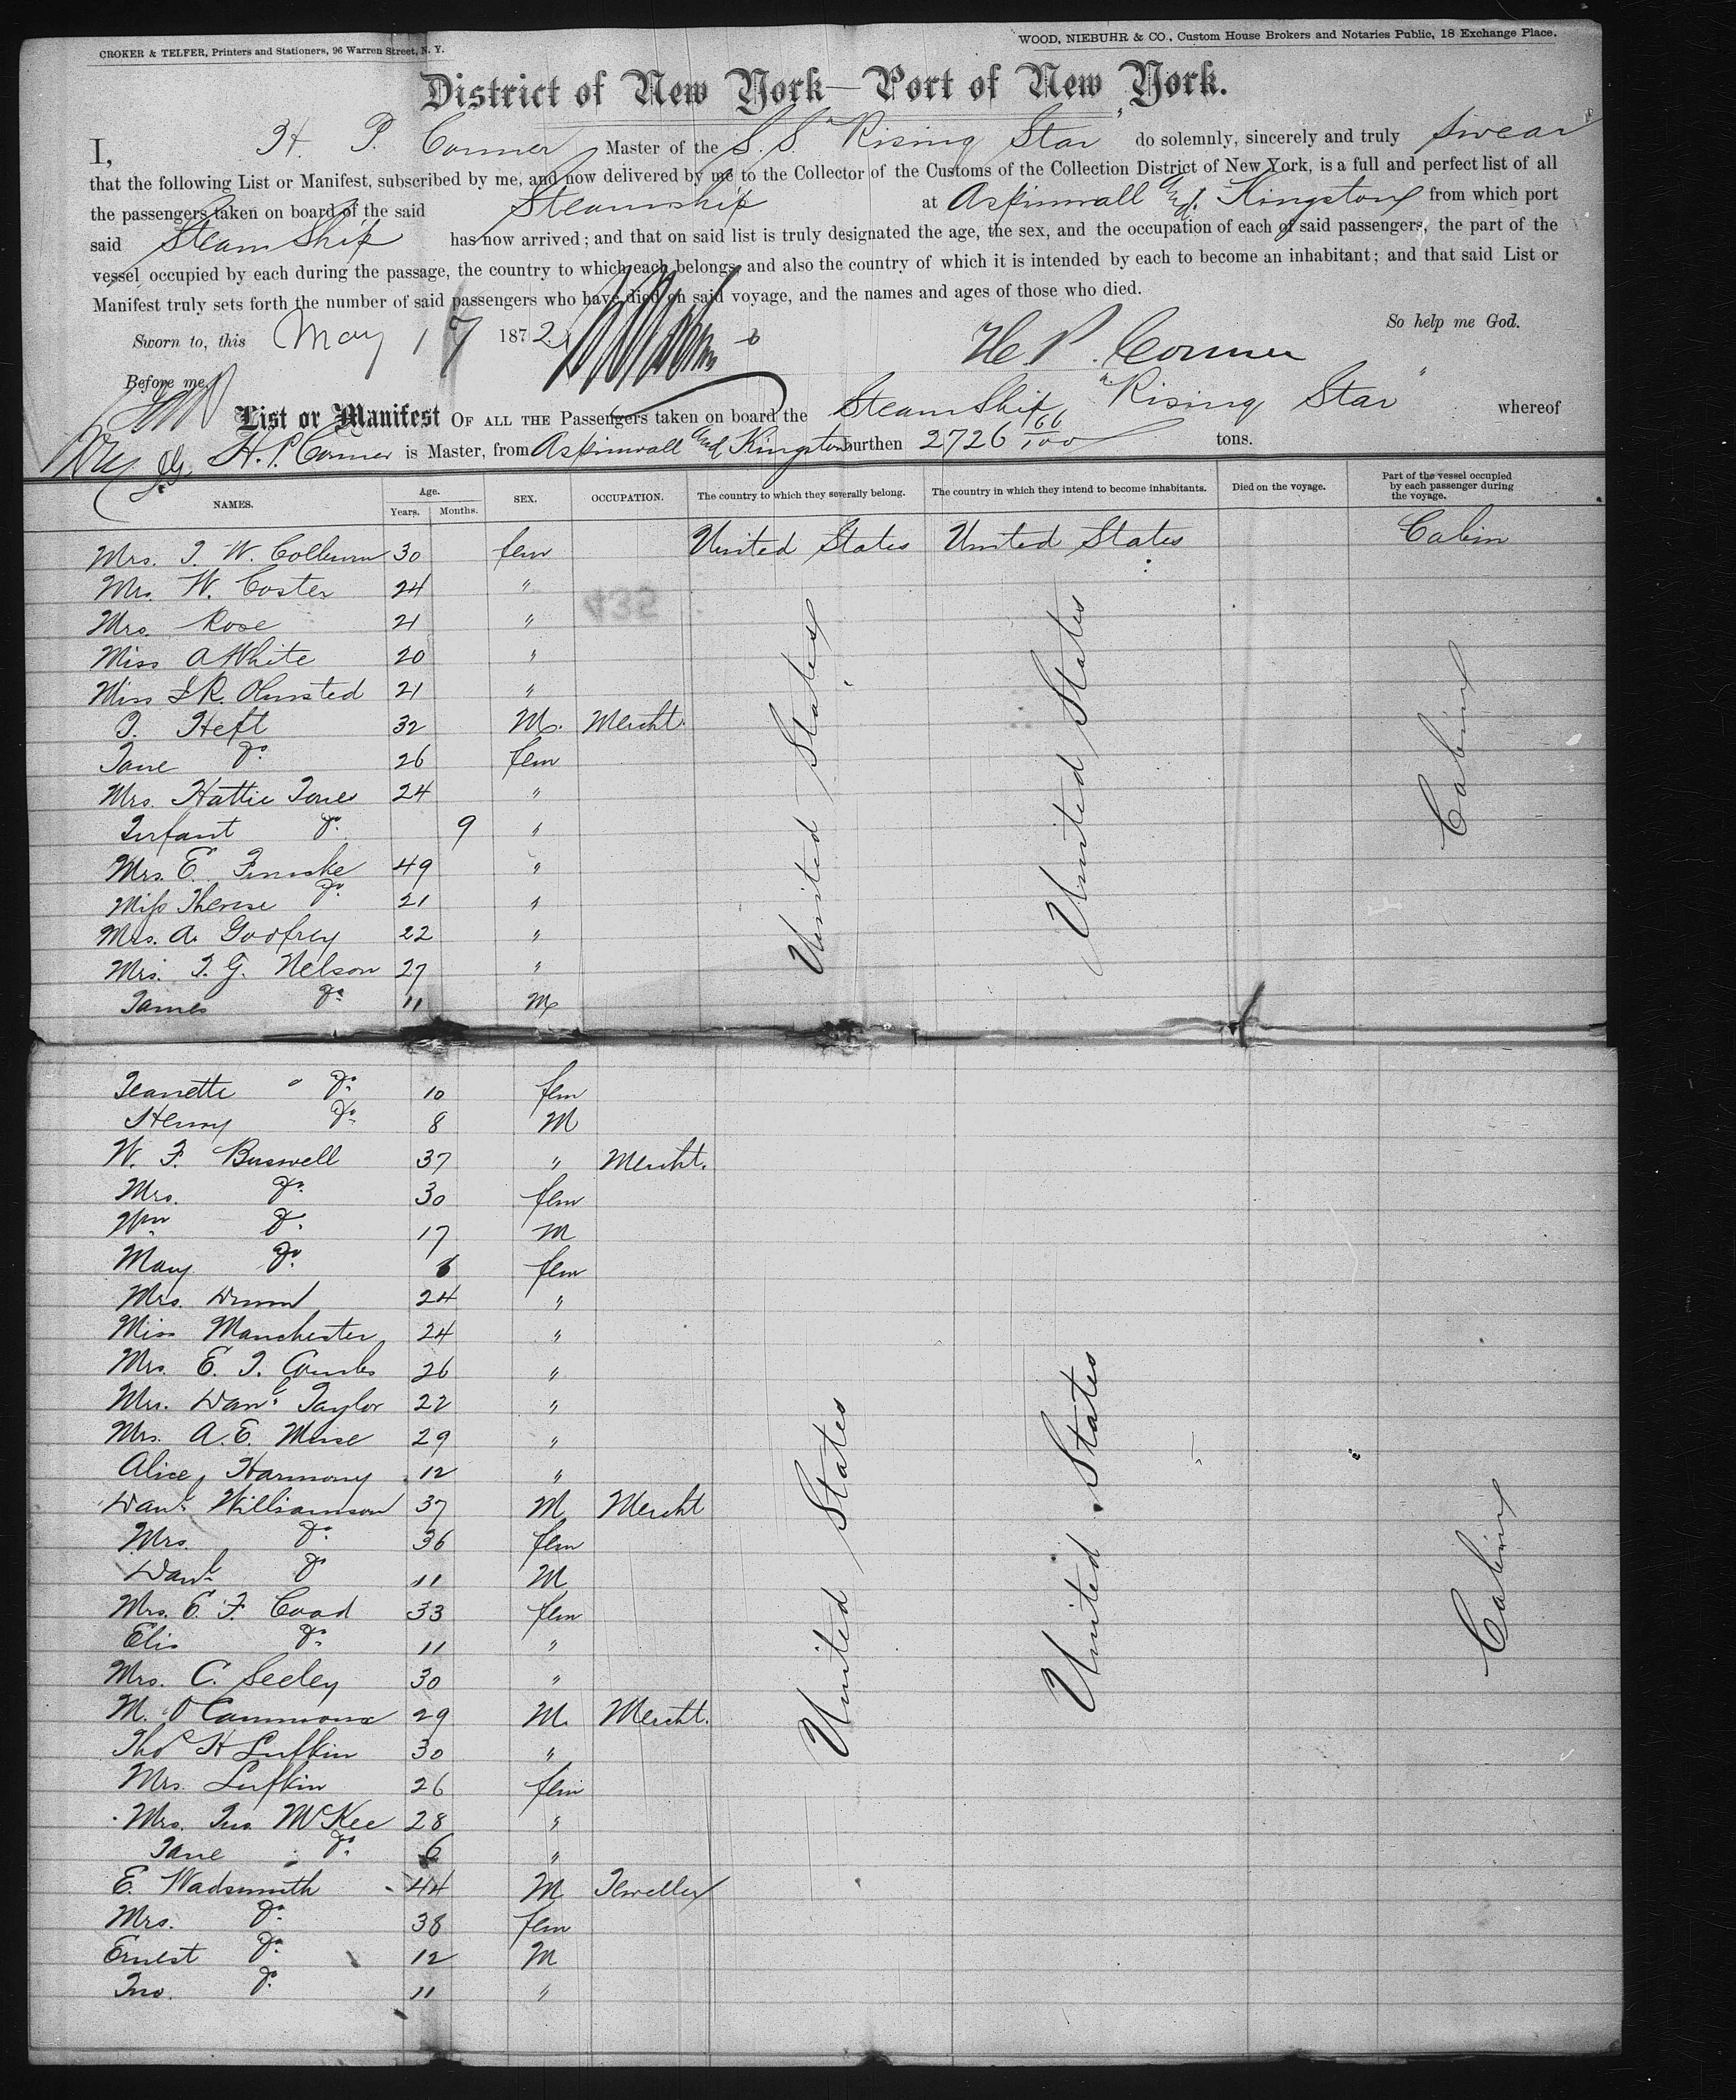 CROKER & TELFER, Printers and Stationers, 96 Warren Street, N. Y.
WOOD, NIEBUHR & CO., Custom House Brokers and Notaries Public, 18 Exchange Place.
District of New York—Port of New York.
I, H. P. Connor Master of the S. S. "Rising Star" do solemnly, sincerely and truly swear
that the following List or Manifest, subscribed by me, and now delivered by me to the Collector of the Customs of the Collection District of New York, is a full and perfect list of all
the passengers taken on board of the said Steamship at Aspinwall and Kingston from which port
said SteamShip has now arrived; and that on said list is truly designated the age, the sex, and the occupation of each of said passengers, the part of the
vessel occupied by each during the passage, the country to which each belongs, and also the country of which it is intended by each to become an inhabitant; and that said List or
Manifest truly sets forth the number of said passengers who have died on said voyage, and the names and ages of those who died.
So help me God.
Sworn to, this May 17 1872 H. P. Connor
Before me,
List or Manifest OF ALL THE Passengers taken on board the SteamShip "Rising Star" whereof
H. P. Connor is Master, from Aspinwall and Kingston burthen 2726 66/100 tons.
NAMES. Age. Years. Months. SEX. OCCUPATION. The country to which they severally belong. The country in which they intend to become inhabitants. Died on the voyage. Part of the vessel occupied by each passenger during the voyage.
Mrs. J. W. Colburn 30 fem United States United States Cabin
Mrs. W. Coster 24 "
Mrs. Rose 21 "
Miss A White 20 "
Miss R. Olmsted 21 "
J. Heft 32 M. Mercht.
Jane Do. 26 fem
Mrs. Hattie 24 "
Infant Do. 9 "
Mrs. E. 49 "
Miss Therese Do. 21 "
Mrs. A. Godfrey 22 "
Mrs. J. G. Nelson 27 "
James Do. 11 M
United States
United States
Cabin
Jeanette " Do. 10 fem
Henry Do. 8 M
W. F. Buswell 37 " Mercht.
Mrs. Do. 30 fem
Wm Do. 17 M
Mary Do. 6 fem
Mrs. 24 "
Miss Manchester 24 "
Mrs. E. J. Combs 26 "
Mrs. Danl. Taylor 22 "
Mrs. A. E. 29 "
Alice Harmony 12 "
Danl. Williamson 37 M Mercht
Mrs. Do. 36 fem
Danl. Do 11 M
Mrs. E. F. Coad 33 fem
Do. 11 "
Mrs. C. Seeley 30 "
M. 29 M. Mercht.
Thos H Lufkin 30 "
Mrs. Lufkin 26 fem
Mrs. Jno. McKee 28 "
Jane Do. 6 "
E. Wadsmith 44 M Jeweller
Mrs. Do. 38 fem
Ernest Do. 12 M
Jno. Do. 11 "
United States
United States
Cabin